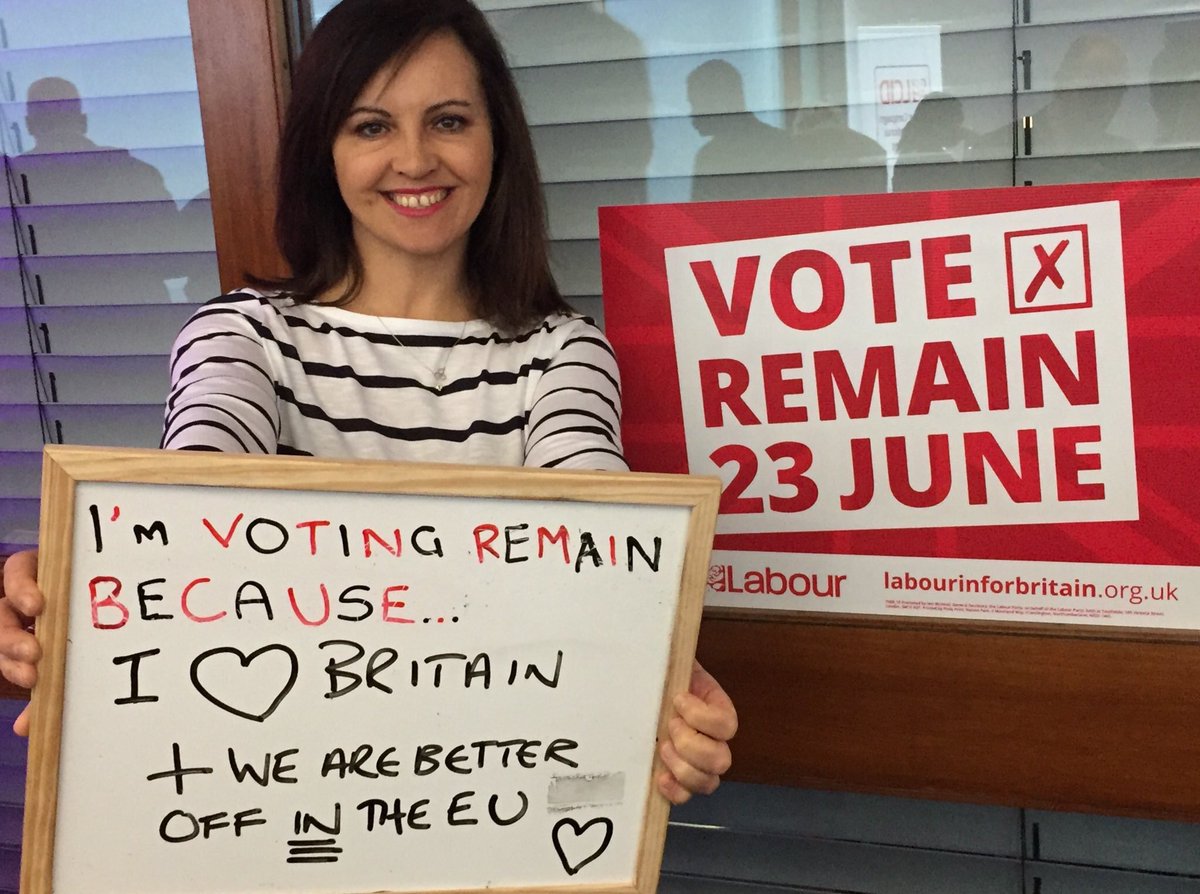 I'm VOTING REMAIN
BECAUSE...
I ♡ BRITAIN
+ WE ARE BETTER
OFF IN THE EU
♡
VOTE ☒
REMAIN
23 JUNE
Labour
labourinforbritain.org.uk